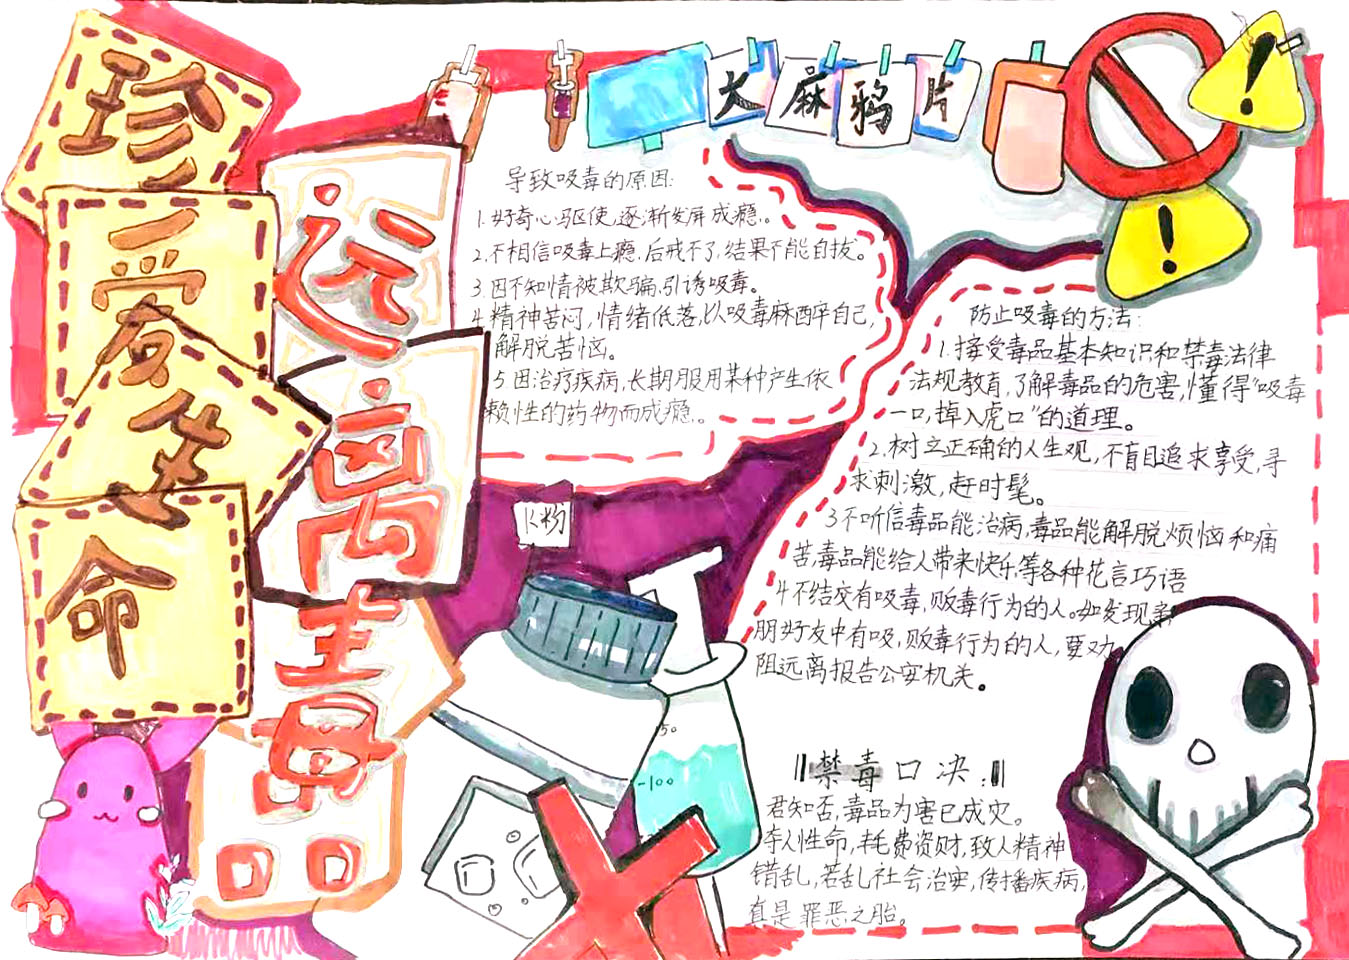 珍
爱
生
命
远
离
毒
品
大麻鸦片
导致吸毒的原因:
1.好奇心驱使,逐渐发展成瘾。
2.不相信吸毒上瘾.后戒不了,结果不能自拔。
3.因不知情被欺骗,引诱吸毒。
4.精神苦闷,情绪低落,以吸毒麻醉自己,
解脱苦恼。
5.因治疗疾病,长期服用某种产生依
赖性的药物而成瘾。
K粉
50
-100
防止吸毒的方法:
1.接受毒品基本知识和禁毒法律
法规教育,了解毒品的危害,懂得"吸毒
一口,掉入虎口"的道理。
2.树立正确的人生观,不盲目追求享受,寻
求刺激,赶时髦。
3不听信毒品能治病,毒品能解脱烦恼和痛
苦,毒品能给人带来快乐等各种花言巧语
4不结交有吸毒,贩毒行为的人。如发现亲
朋好友中有吸,贩毒行为的人,要劝
阻远离报告公安机关。
禁毒口决:
君知否,毒品为害已成灾。
夺人性命,耗费资财,致人精神
错乱,若乱社会治安,传播疾病,
真是罪恶之胎。